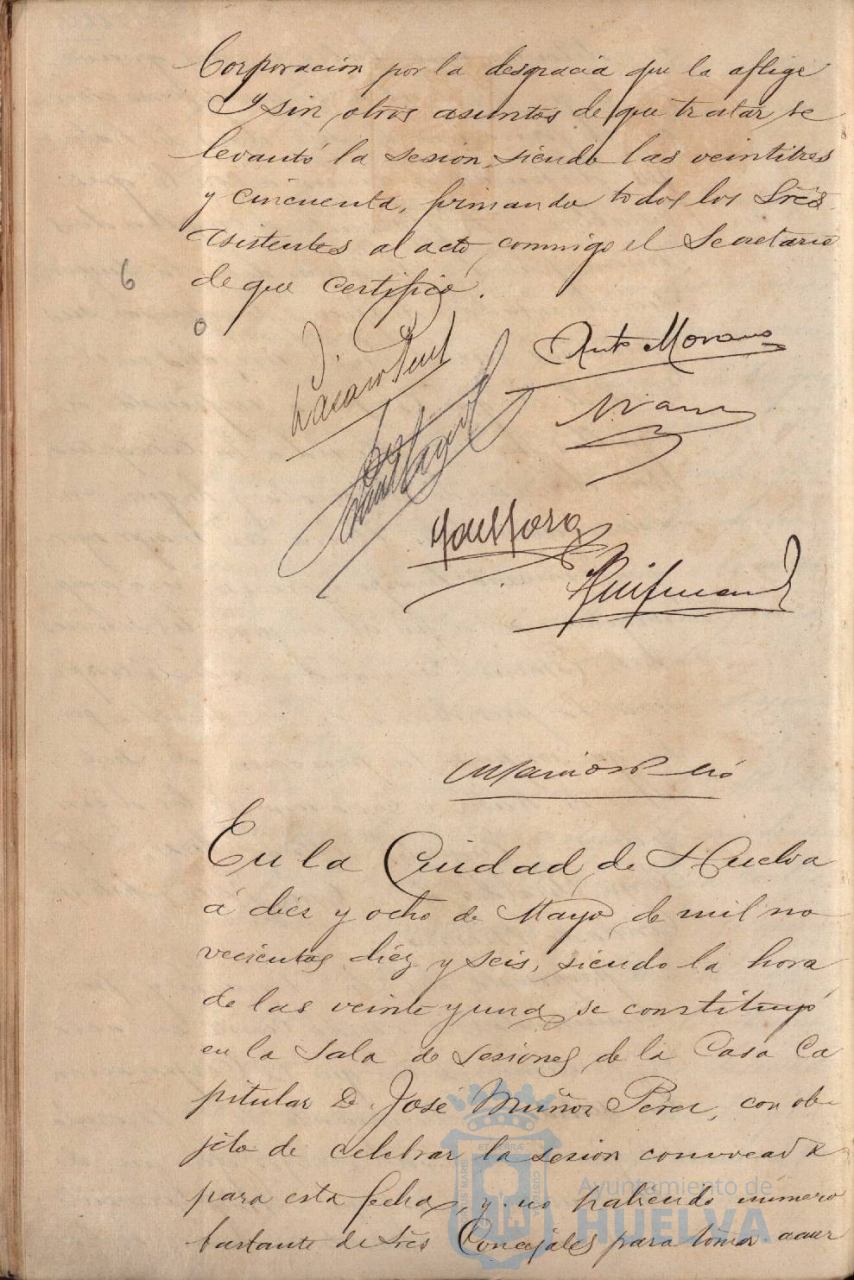 Corporación por la desgracia que la aflige
Y sin otros asuntos de que tratar, se
levantó la sesion, siendo las veintitres
y cincuenta, firmando todos los Sres.
asistentes al acto, conmigo el Secretario
de que certifico.
6
o
Anto Morano
En la Ciudad de Huelva
á diez y ocho de Mayo de mil no
vecientos diez y seis, siendo la hora
de las veinte y una, se constituyó
en la Sala de Sesiones de la Casa Ca
pitular D. José Muñoz Perez, con ob-
jeto de celebrar la sesion convocada
para esta fecha, y no habiendo número
bastante de Sres Concejales para tomar acuer
Ayuntamiento de
HUELVA